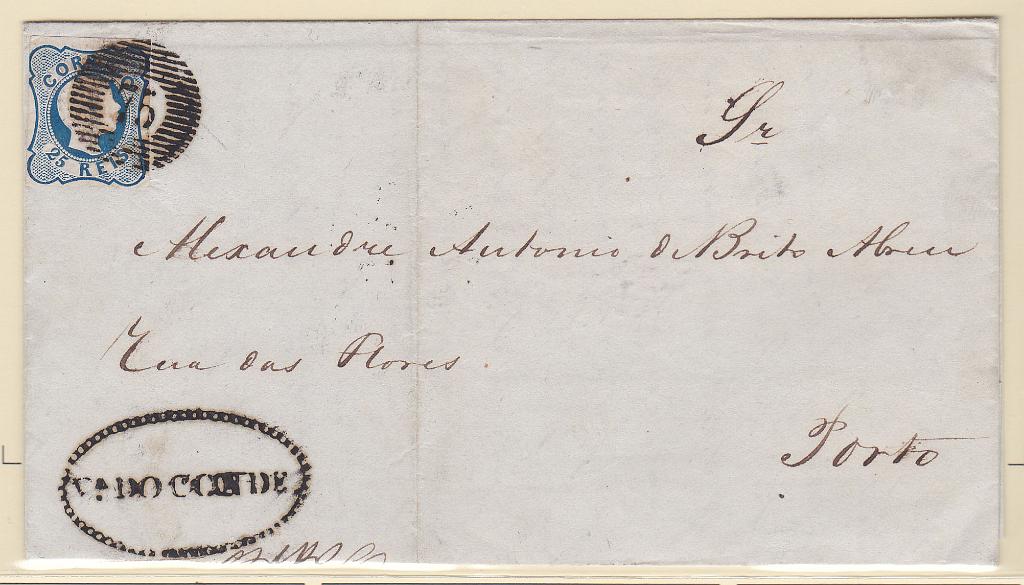 CORREIO
25 REIS
Sr
Alexandre Antonio d Brito Abreu
Rua das Flores
Porto
VA DO CONDE